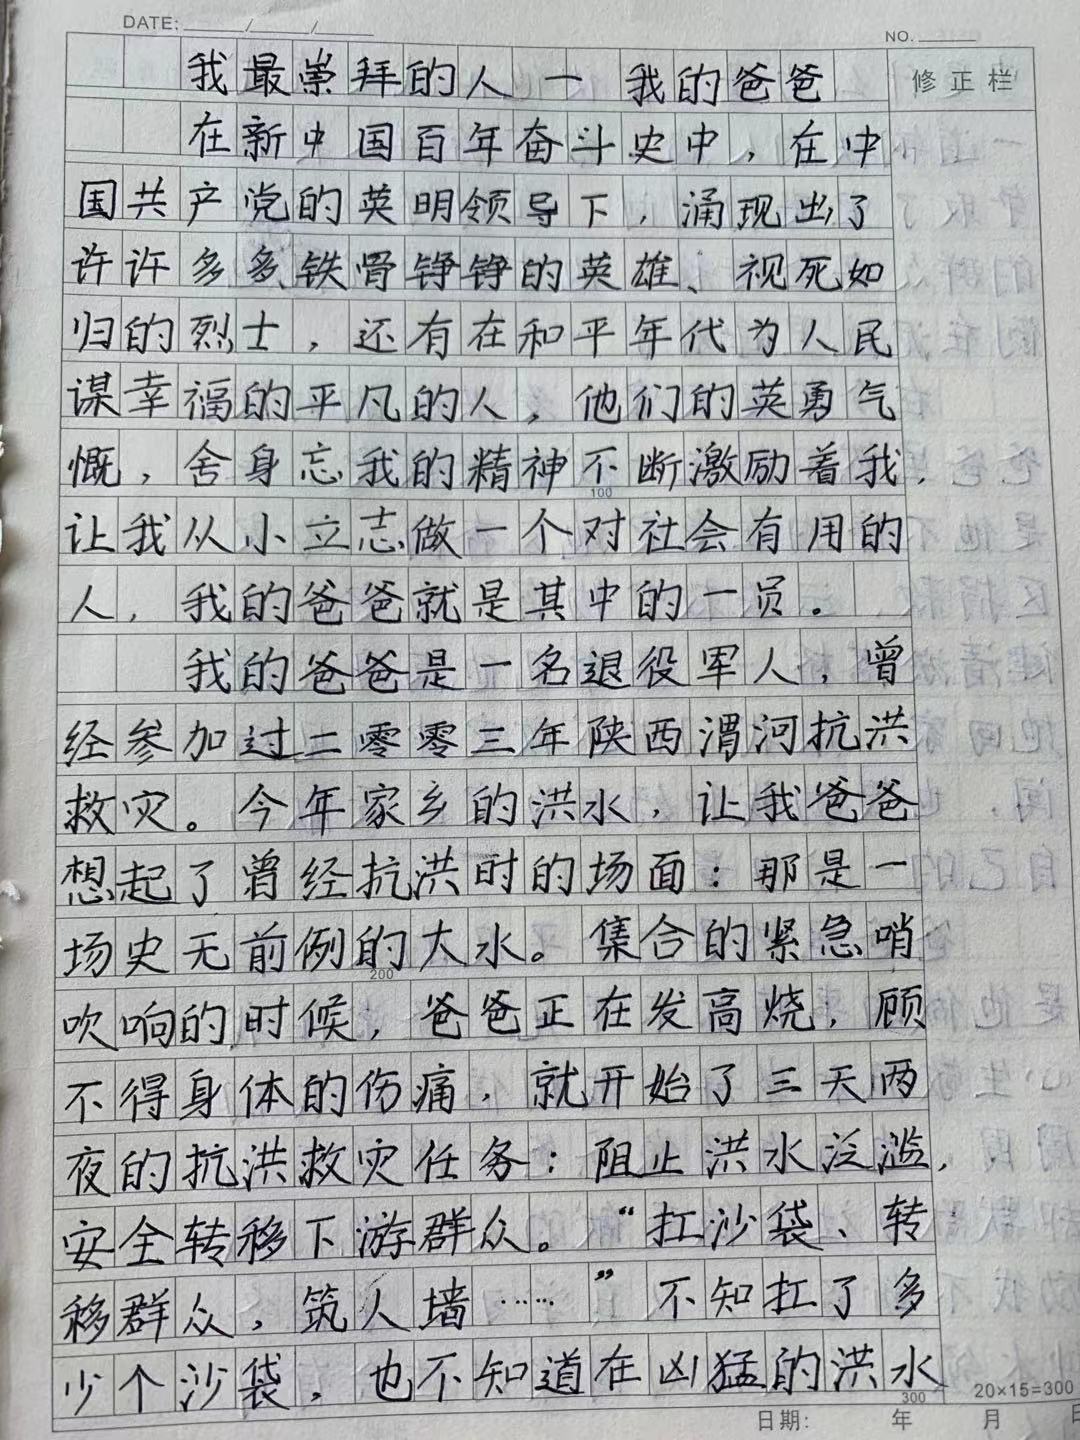 DATE: ____/____/____
NO. ____
修正栏
我最崇拜的人一 我的爸爸
在新中国百年奋斗史中，在中
国共产党的英明领导下，涌现出了
许许多多铁骨铮铮的英雄、视死如
归的烈士，还有在和平年代为人民
谋幸福的平凡的人，他们的英勇气
慨，舍身忘我的精神不断激励着我，
100
让我从小立志做一个对社会有用的
人，我的爸爸就是其中的一员。
我的爸爸是一名退役军人，曾
经参加过二零零三年陕西渭河抗洪
救灾。今年家乡的洪水，让我爸爸
想起了曾经抗洪时的场面：那是一
场史无前例的大水。集合的紧急哨
200
吹响的时候，爸爸正在发高烧，顾
不得身体的伤痛，就开始了三天两
夜的抗洪救灾任务：阻止洪水泛滥，
安全转移下游群众。“扛沙袋、转
移群众，筑人墙……”不知扛了多
少个沙袋，也不知道在凶猛的洪水
300
20×15=300
日期: 年 月 日